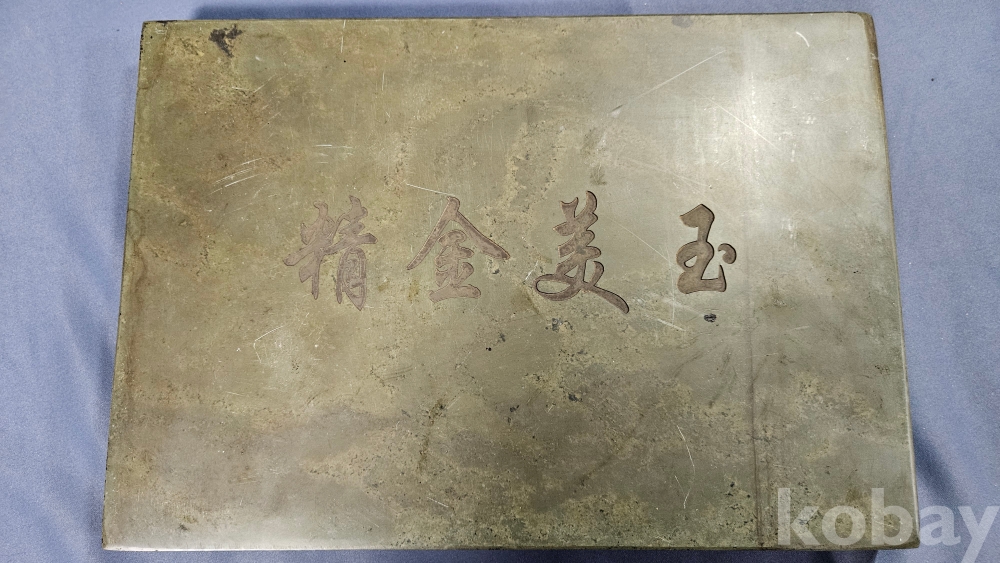 精金美玉
kobay